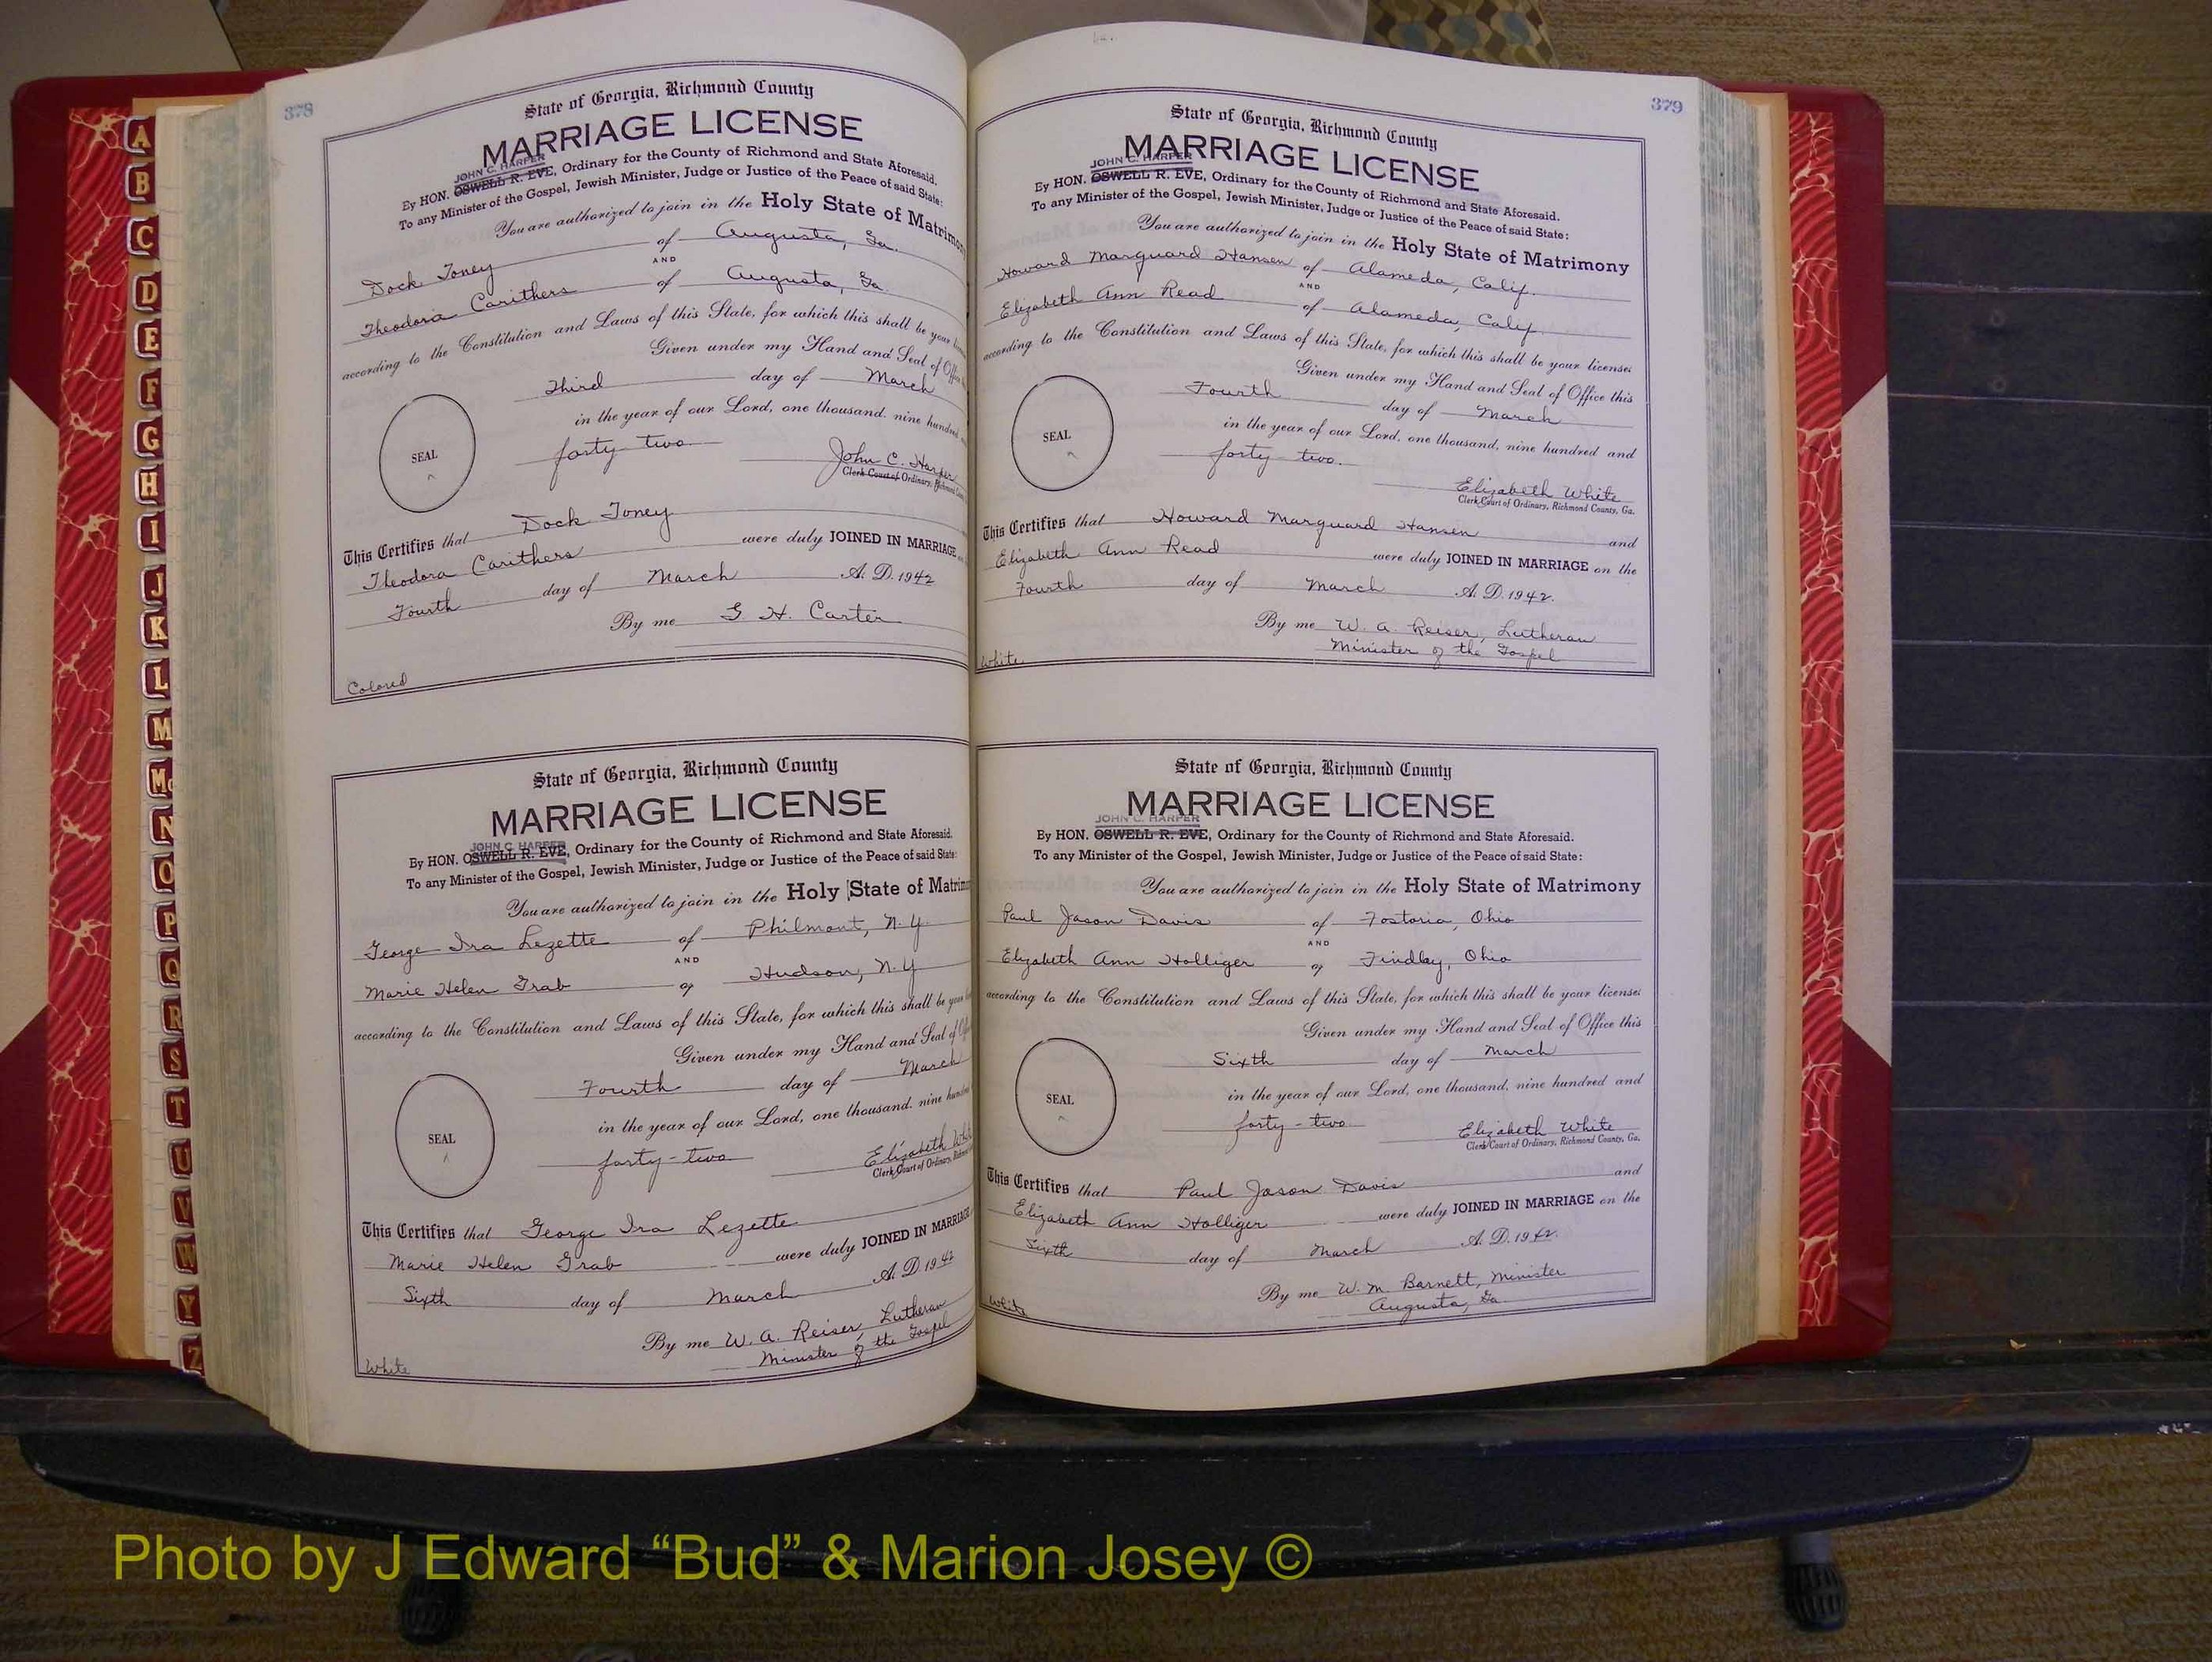 378
State of Georgia, Richmond County
MARRIAGE LICENSE
JOHN C. HARPER
By HON. OSWELL R. EVE, Ordinary for the County of Richmond and State Aforesaid.
To any Minister of the Gospel, Jewish Minister, Judge or Justice of the Peace of said State:
You are authorized to join in the Holy State of Matrimony
Dock Toney of Augusta, Ga.
AND
Theodora Carithers of Augusta, Ga.
according to the Constitution and Laws of this State, for which this shall be your
Given under my Hand and Seal of Office
Third day of March
in the year of our Lord, one thousand, nine hundred
forty-two
SEAL
John C. Harper
Clerk Court of Ordinary, Richmond
This Certifies that Dock Toney
Theodora Carithers were duly JOINED IN MARRIAGE
Fourth day of March A. D. 1942
By me G. H. Carter
Colored
State of Georgia, Richmond County
MARRIAGE LICENSE
JOHN C. HARPER
By HON. OSWELL R. EVE, Ordinary for the County of Richmond and State Aforesaid.
To any Minister of the Gospel, Jewish Minister, Judge or Justice of the Peace of said State:
You are authorized to join in the Holy State of Matrim
George Ira Lezette of Philmont, N. Y.
AND
Marie Helen Grab of Hudson, N. Y
according to the Constitution and Laws of this State, for which this shall be your
Given under my Hand and Seal of
Fourth day of March
in the year of our Lord, one thousand, nine
forty-two
SEAL
Elizabeth White
Clerk Court of Ordinary,
This Certifies that George Ira Lezette
Marie Helen Grab were duly JOINED IN MARRIAGE
Sixth day of March A. D. 1942
By me W. A. Reiser, Lutheran
Minister of the Gospel
White
379
State of Georgia, Richmond County
MARRIAGE LICENSE
JOHN C. HARPER
By HON. OSWELL R. EVE, Ordinary for the County of Richmond and State Aforesaid.
To any Minister of the Gospel, Jewish Minister, Judge or Justice of the Peace of said State:
You are authorized to join in the Holy State of Matrimony
Howard Marguard Hansen of Alameda, Calif.
AND
Elizabeth Ann Read of Alameda, Calif.
according to the Constitution and Laws of this State, for which this shall be your license:
Given under my Hand and Seal of Office this
Fourth day of March
in the year of our Lord, one thousand, nine hundred and
forty-two.
SEAL
Elizabeth White
Clerk Court of Ordinary, Richmond County, Ga.
This Certifies that Howard Marguard Hansen and
Elizabeth Ann Read were duly JOINED IN MARRIAGE on the
Fourth day of March A. D. 1942.
By me W. A. Reiser, Lutheran
Minister of the Gospel
White
State of Georgia, Richmond County
MARRIAGE LICENSE
JOHN C. HARPER
By HON. OSWELL R. EVE, Ordinary for the County of Richmond and State Aforesaid.
To any Minister of the Gospel, Jewish Minister, Judge or Justice of the Peace of said State:
You are authorized to join in the Holy State of Matrimony
Paul Jason Davis of Fostoria, Ohio
AND
Elizabeth Ann Holliger of Findlay, Ohio
according to the Constitution and Laws of this State, for which this shall be your license:
Given under my Hand and Seal of Office this
Sixth day of March
in the year of our Lord, one thousand, nine hundred and
forty-two
SEAL
Elizabeth White
Clerk Court of Ordinary, Richmond County, Ga.
This Certifies that Paul Jason Davis and
Elizabeth Ann Holliger were duly JOINED IN MARRIAGE on the
Sixth day of March A. D. 1942.
By me W. M. Barnett, Minister
Augusta, Ga
White
A
B
C
D
E
F
G
H
I
J
K
L
M
Mc
N
O
P
Q
R
S
T
U
V
W
Y
Z
Photo by J Edward “Bud” & Marion Josey ©